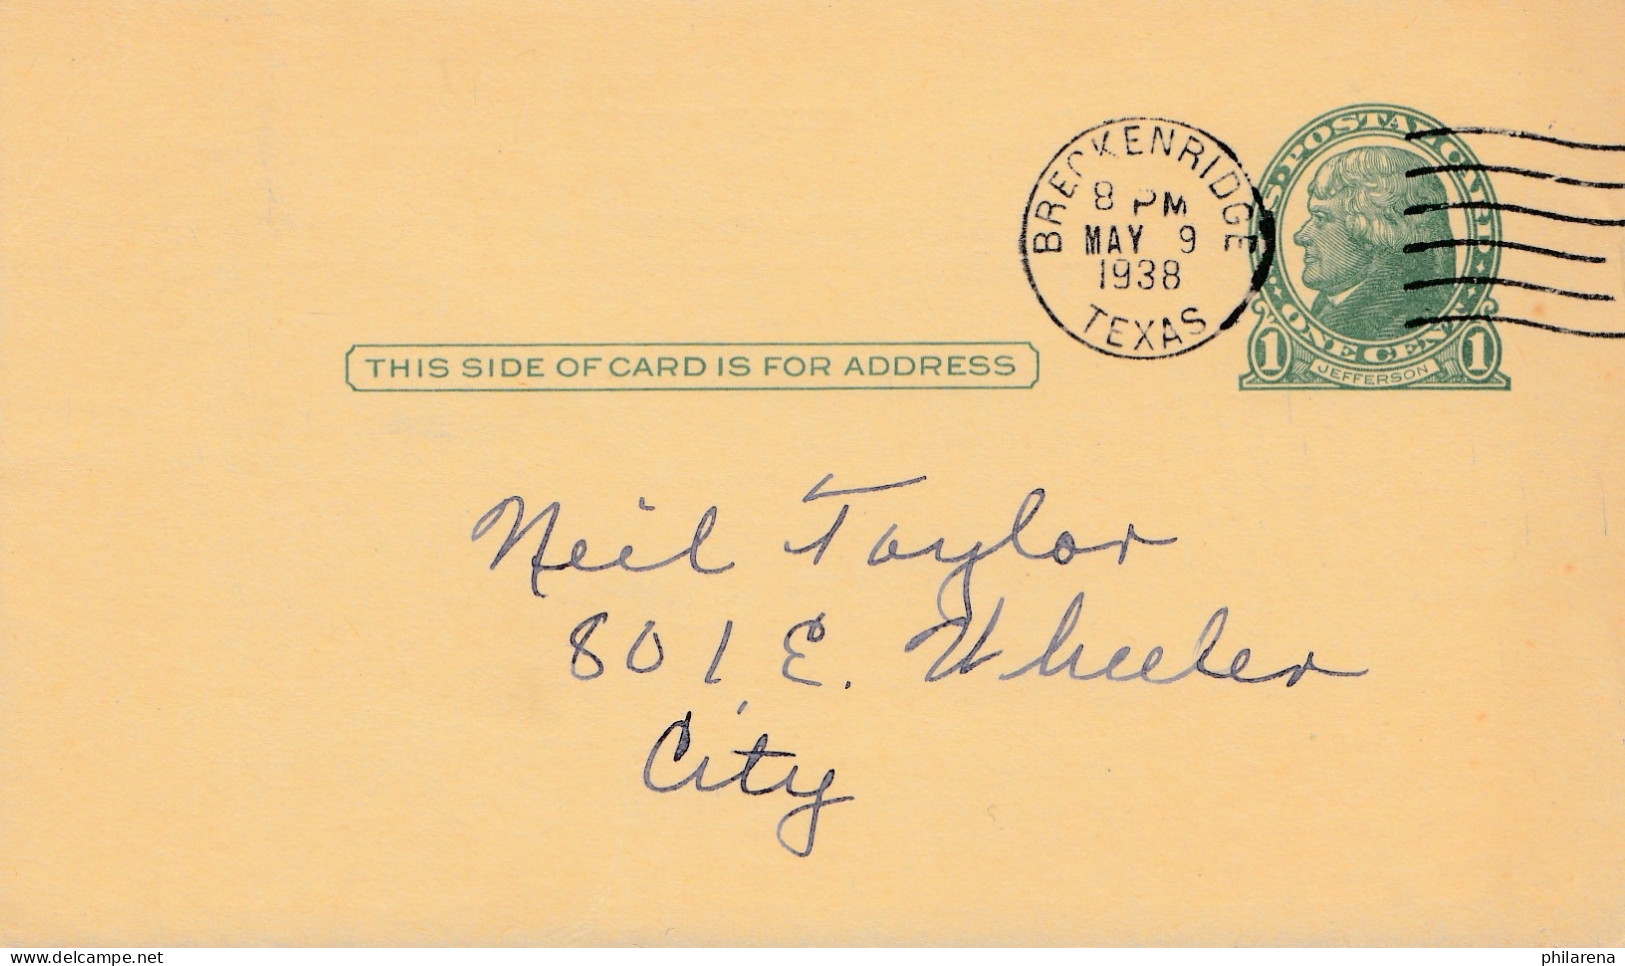 BRECKENRIDGE
8 PM
MAY 9
1938
TEXAS
U.S. POSTAL CARD
ONE CENT
1 JEFFERSON 1
THIS SIDE OF CARD IS FOR ADDRESS
Neil Taylor
801 E. Wheeler
City
www.delcampe.net
philarena